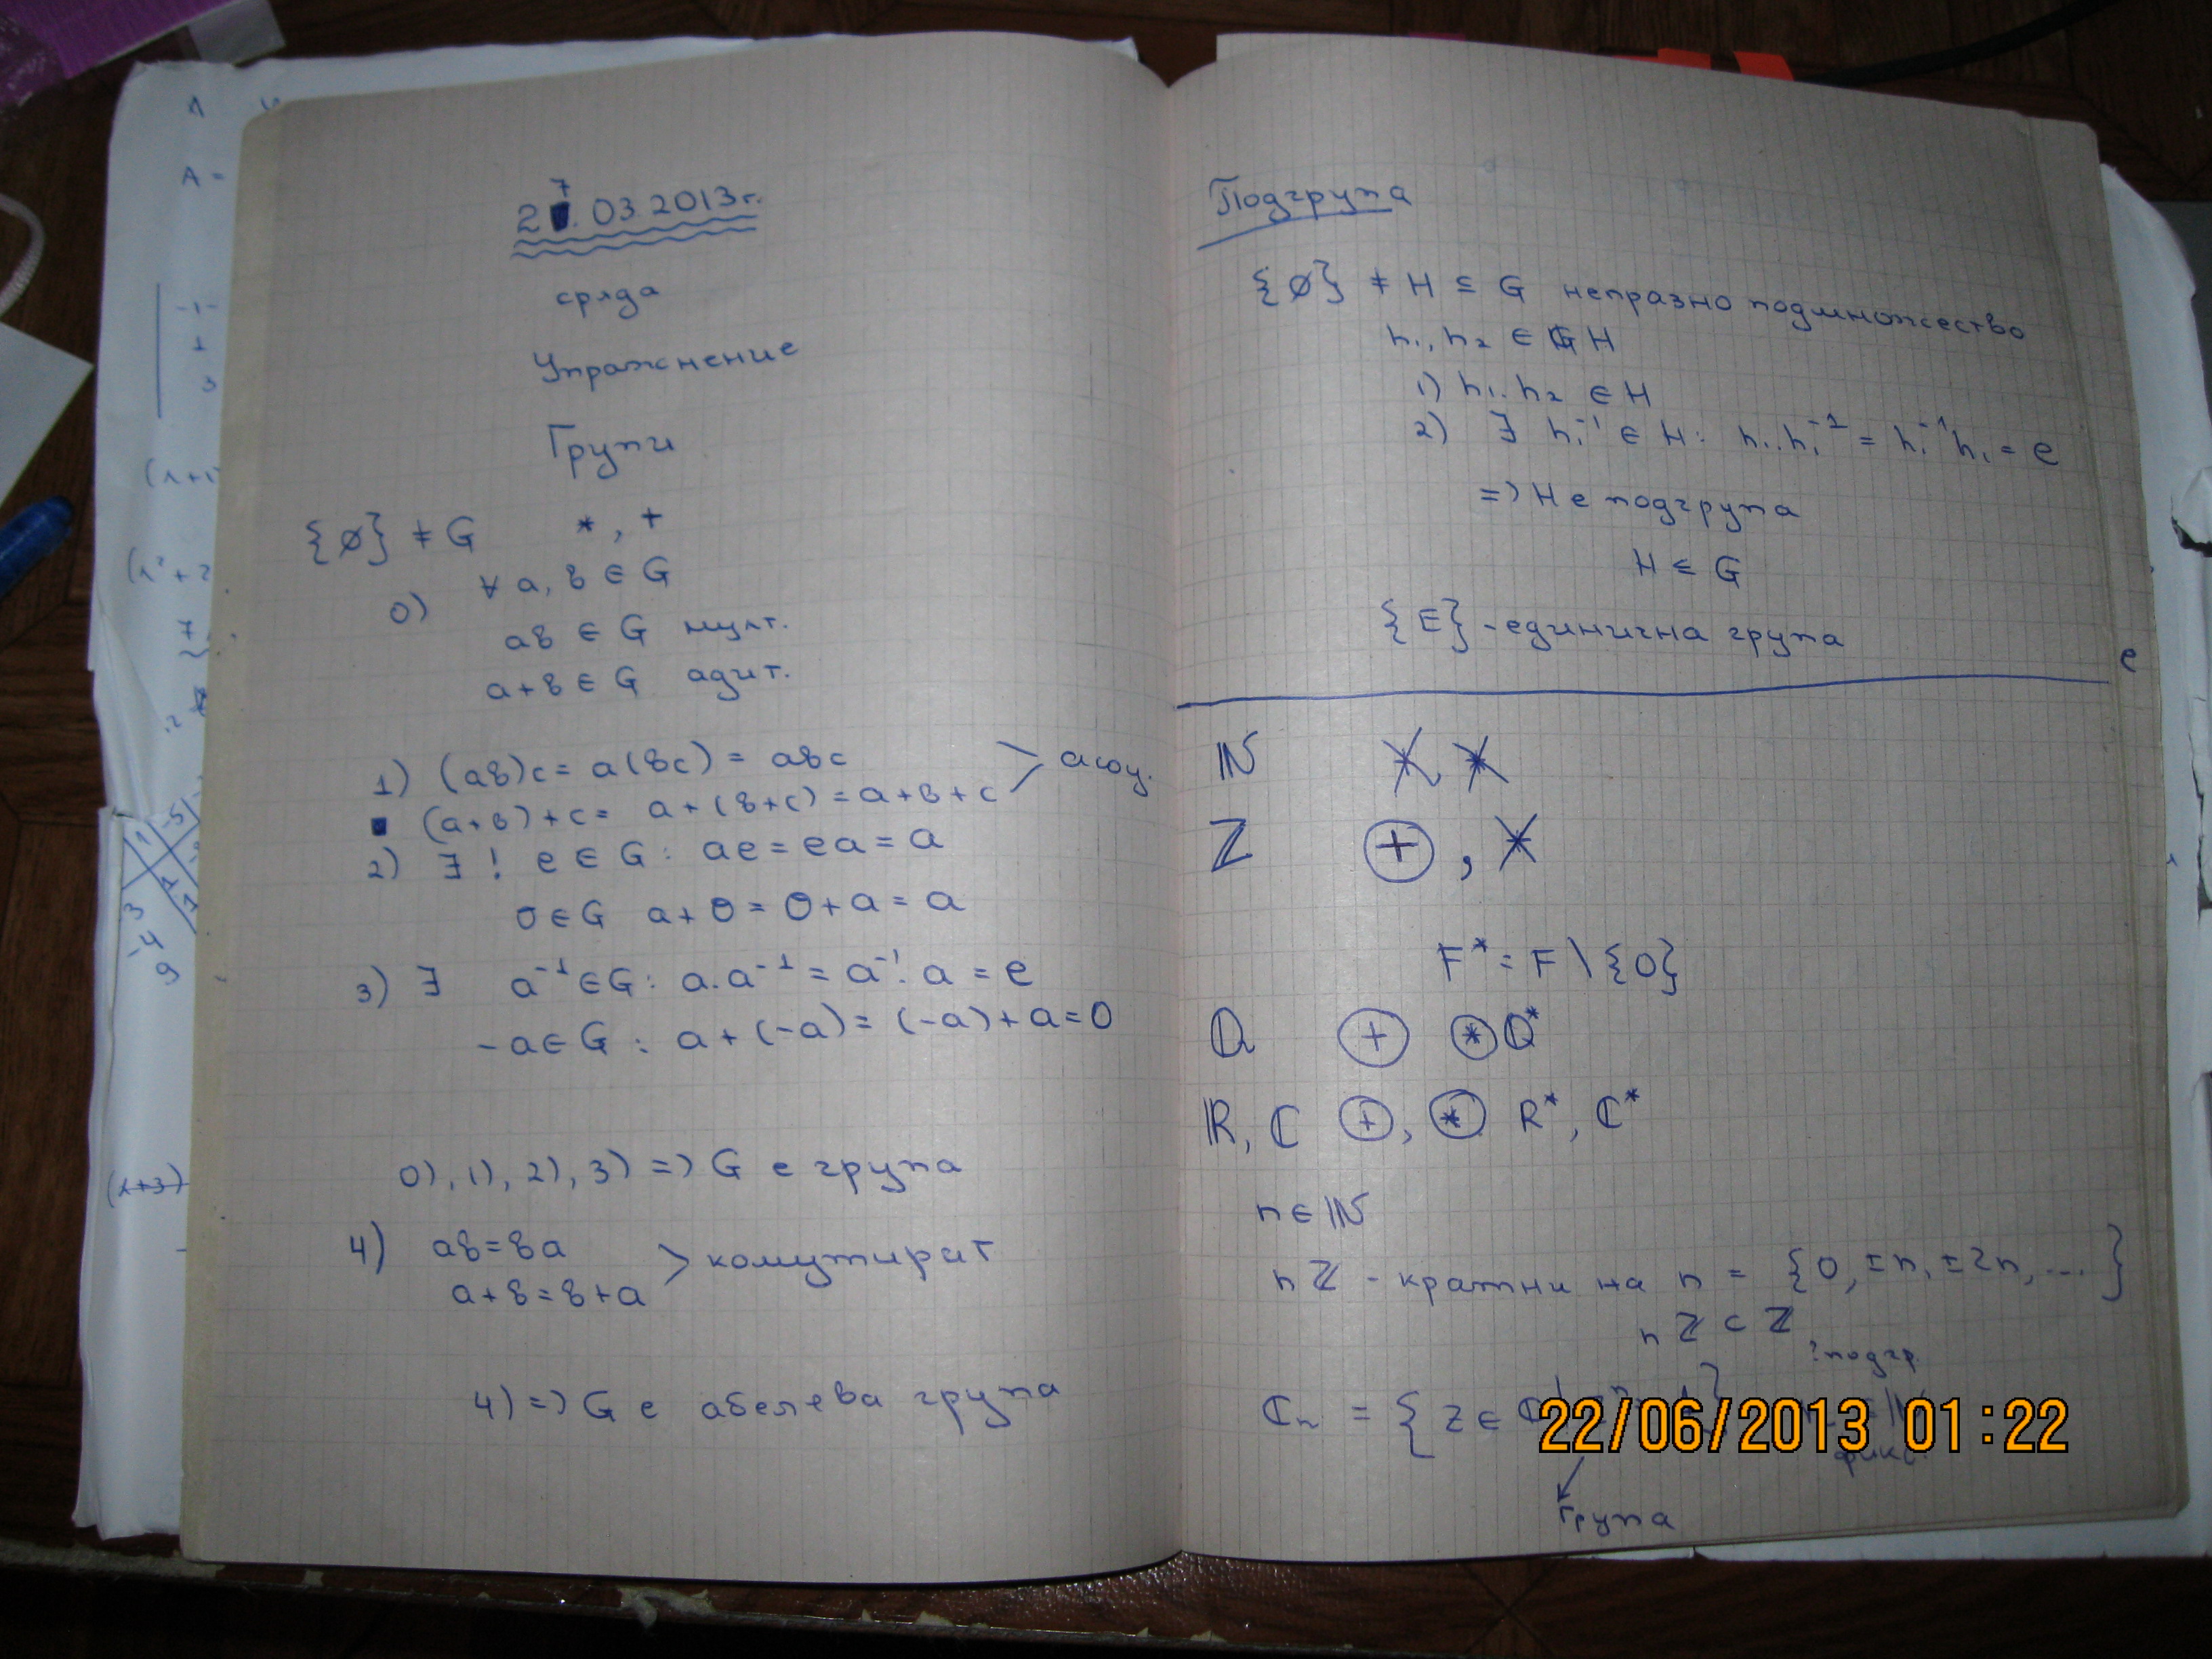 27.03.2013г.
сряда
Упражнение
Групи
{∅} ≠ G *, +
0) ∀ a, b ∈ G
ab ∈ G мулт.
a+b ∈ G адит.
1) (ab)c = a(bc) = abc
(a+b)+c = a+(b+c) = a+b+c > асоц.
2) ∃! e ∈ G: ae = ea = a
0 ∈ G a+0 = 0+a = a
3) ∃ a⁻¹ ∈ G: a.a⁻¹ = a⁻¹.a = e
-a ∈ G: a+(-a) = (-a)+a = 0
0), 1), 2), 3) => G е група
4) ab = ba
a+b = b+a > комутират
4) => G е абелева група
Подгрупа
{∅} ≠ H ⊆ G непразно подмножество
h₁, h₂ ∈ H
1) h₁.h₂ ∈ H
2) ∃ h₁⁻¹ ∈ H: h₁.h₁⁻¹ = h₁⁻¹h₁ = e
=> H е подгрупа
H ≤ G
{E} - единична група
e
ℕ + *
ℤ ⊕, *
F* = F \ {0}
ℚ ⊕ ⊛ ℚ*
ℝ, ℂ ⊕, ⊛ R*, ℂ*
n ∈ ℕ
nℤ - кратни на n = {0, ±n, ±2n, ...}
nℤ ⊂ ℤ
? подгр.
ℂₙ = {z ∈ ℂ
фикс.
Група
22/06/2013 01:22
A
A =
-1-
1
3
7
3
-4
9
(λ+3)